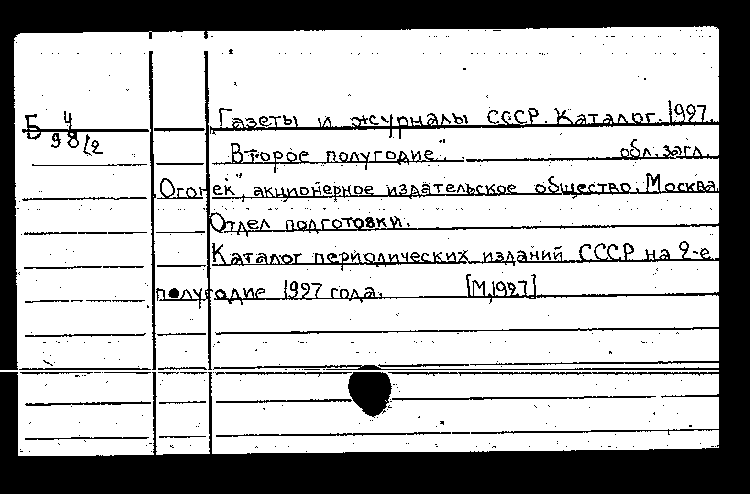 Б 4
98/2
Газеты и журналы СССР. Каталог. 1927.
Второе полугодие". обл. загл.
Огонек", акционерное издательское общество. Москва
Отдел подготовки.
Каталог периодических изданий СССР на 2-е
полугодие 1927 года. [М, 1927]